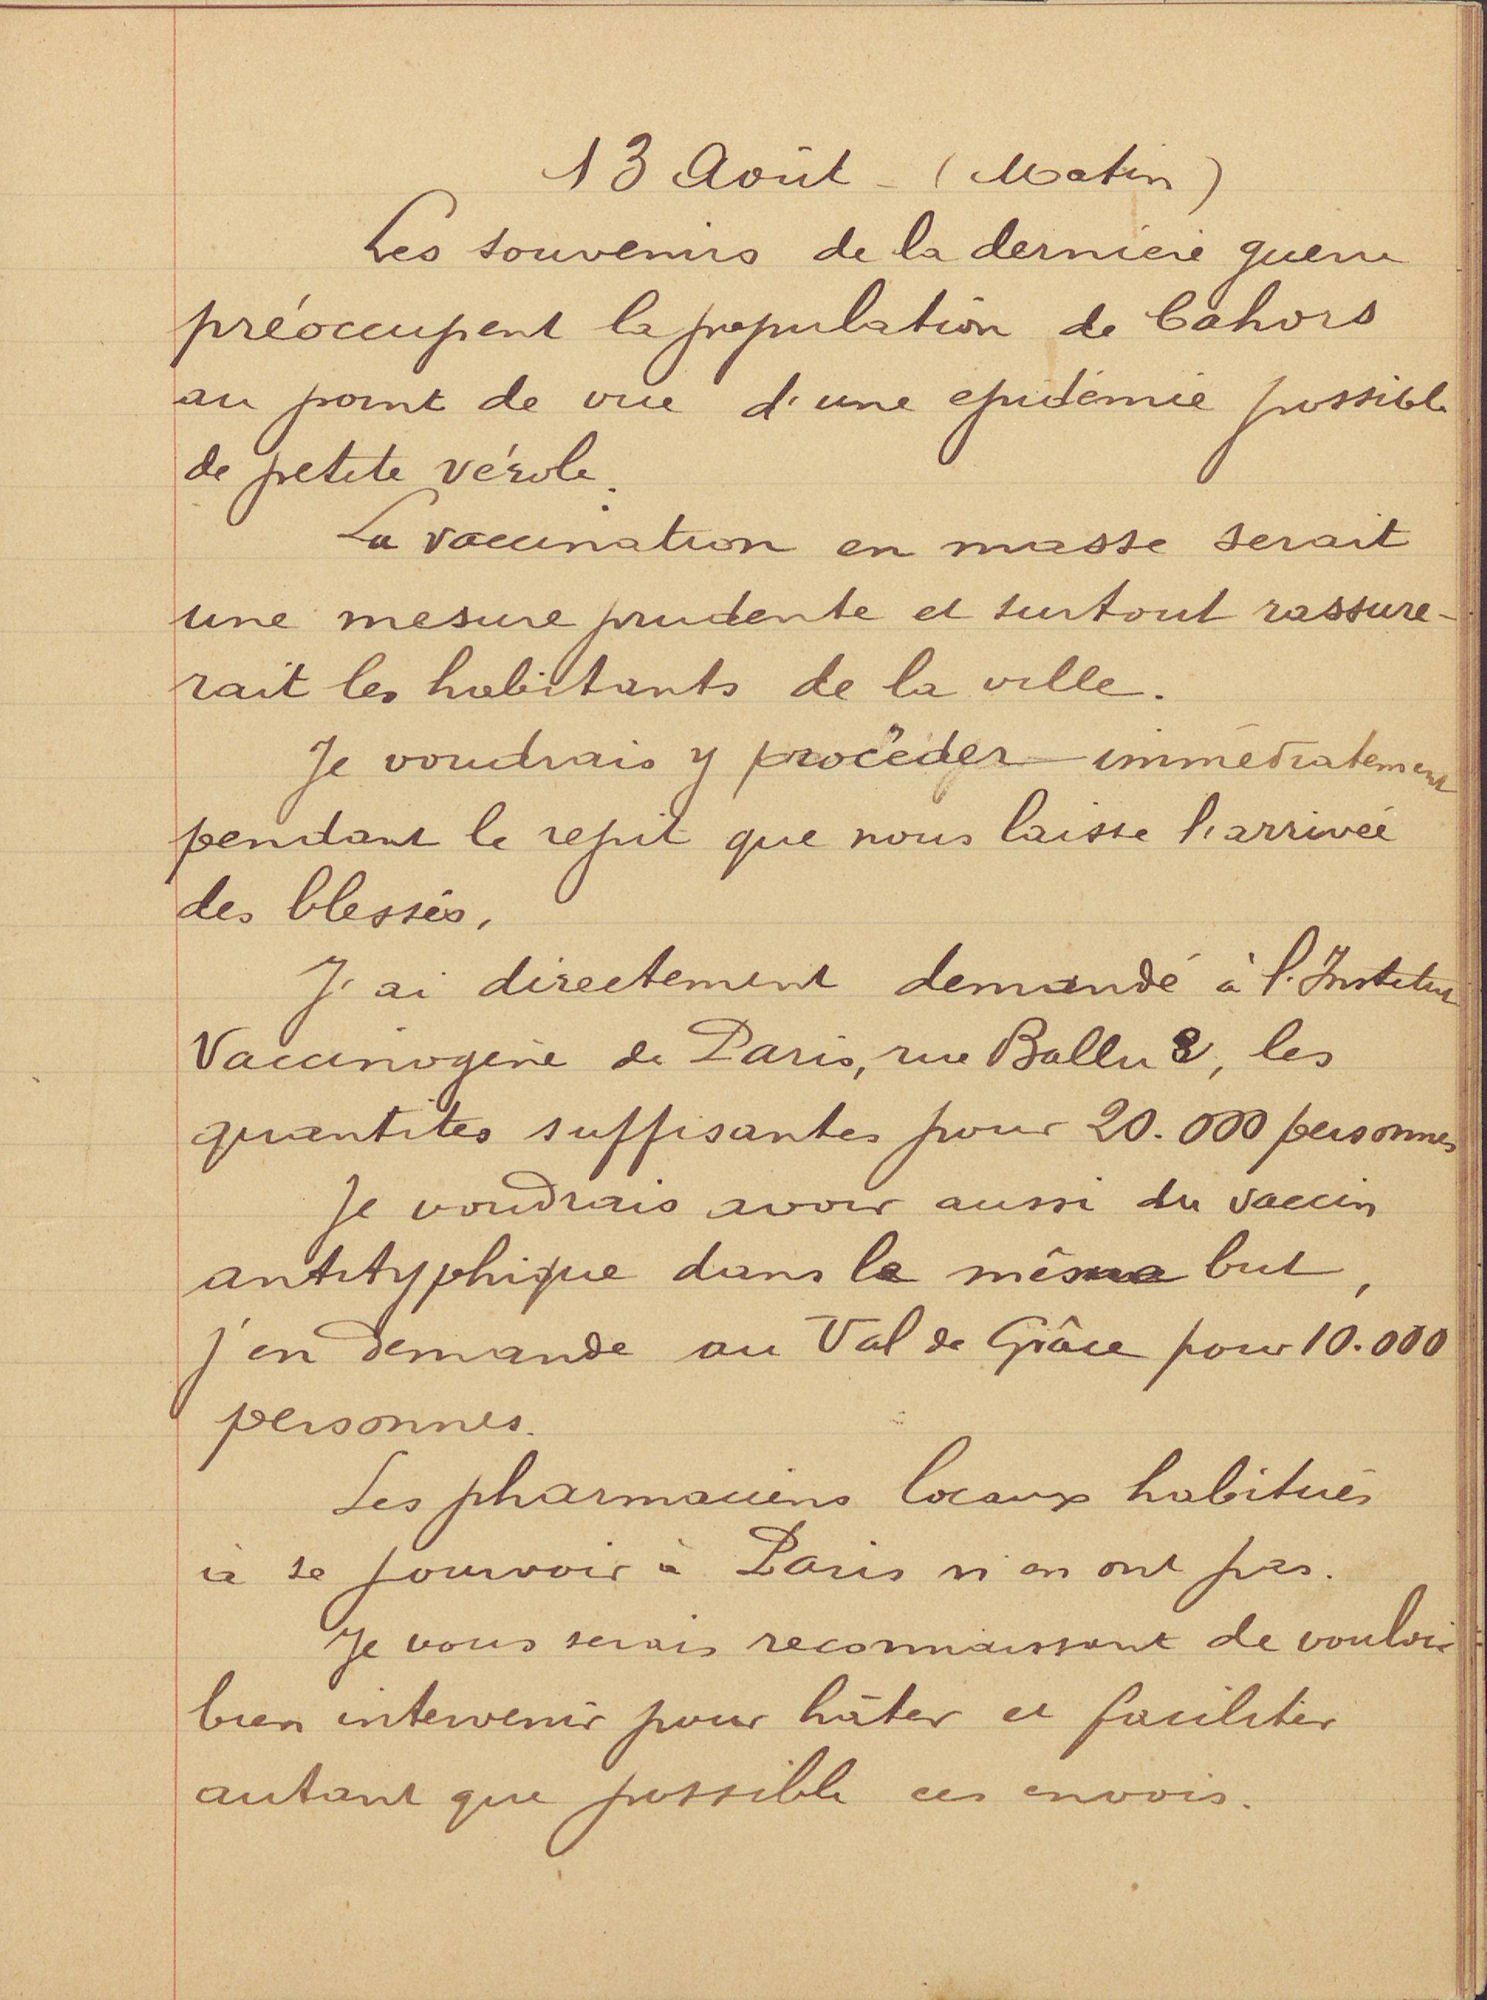 13 Août - (Matin)
Les souvenirs de la dernière guerre
préoccupent la population de Cahors
au point de vue d'une epidémie possible
de petite vérole.
La vaccination en masse serait
une mesure prudente et surtout rassure-
rait les habitants de la ville.
Je voudrais y procéder immédiatement
pendant le répit que nous laisse l'arrivée
des blessés.
J'ai directement demandé à l'Institut
Vaccinogène de Paris, rue Ballu 8, les
quantités suffisantes pour 20.000 personnes
Je voudrais avoir aussi du vaccin
antityphique dans le même but,
j'en demande au Val de Grâce pour 10.000
personnes.
Les pharmaciens locaux habitués
à se pourvoir à Paris n'en ont pas.
Je vous serais reconnaissant de vouloir
bien intervenir pour hâter et faciliter
autant que possible ces envois.